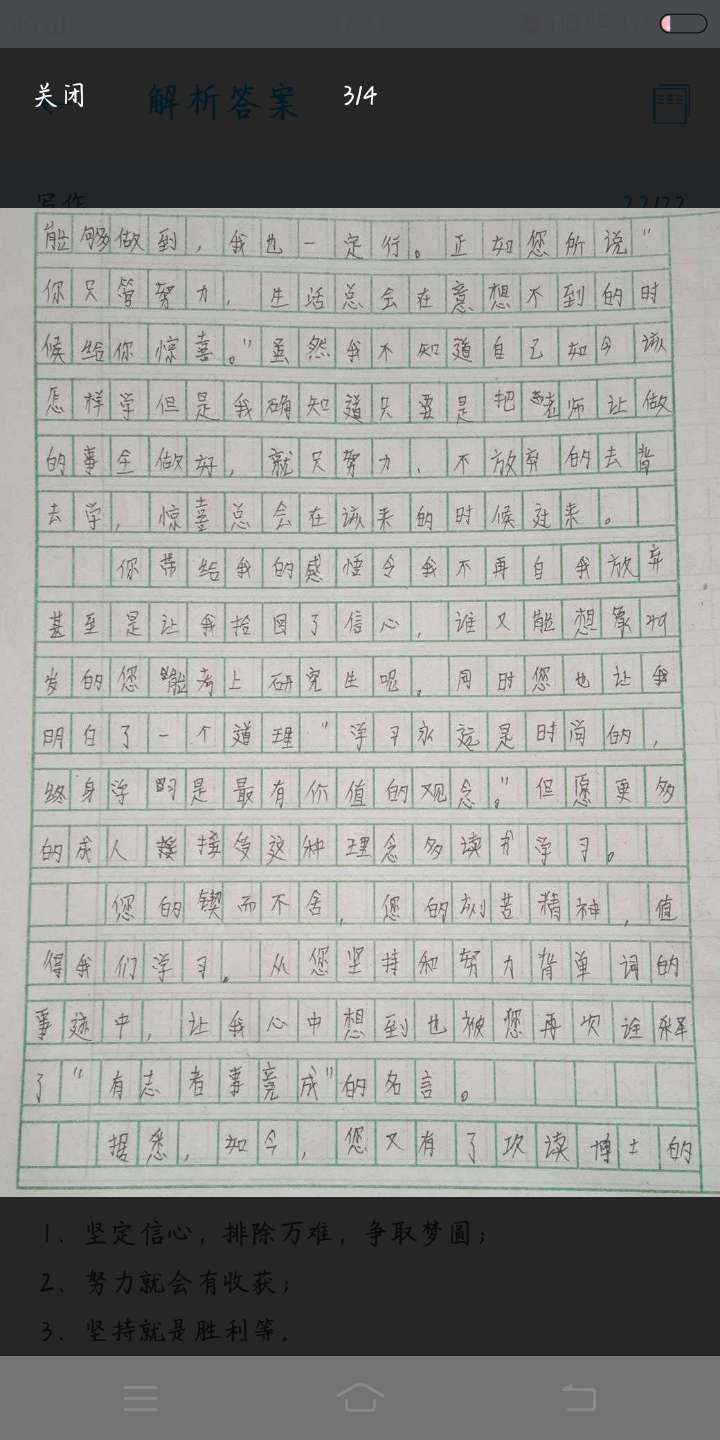 关闭
解析答案
3/4
写作
22/22
能够做到，我也一定行。正如您所说“
你只管努力，生活总会在意想不到的时
候给你惊喜。”虽然我不知道自己如今该
怎样学但是我确知道只要是把老师让做
的事全做好，就只努力、不放弃的去背
去学，惊喜总会在该来的时候赶来。
你带给我的感悟令我不再自我放弃
甚至是让我拾回了信心，谁又能想象
岁的您能考上研究生呢，同时您也让我
明白了一个道理“学习永远是时尚的，
终身学习是最有价值的观念。”但愿更多
的成人接受这种理念多读书学习。
您的锲而不舍，您的刻苦精神，值
得我们学习。从您坚持和努力背单词的
事迹中，让我心中想到也被您再次诠释
了“有志者事竟成”的名言。
据悉，如今，您又有了攻读博士的
1、坚定信心，排除万难，争取梦圆；
2、努力就会有收获；
3、坚持就是胜利等。